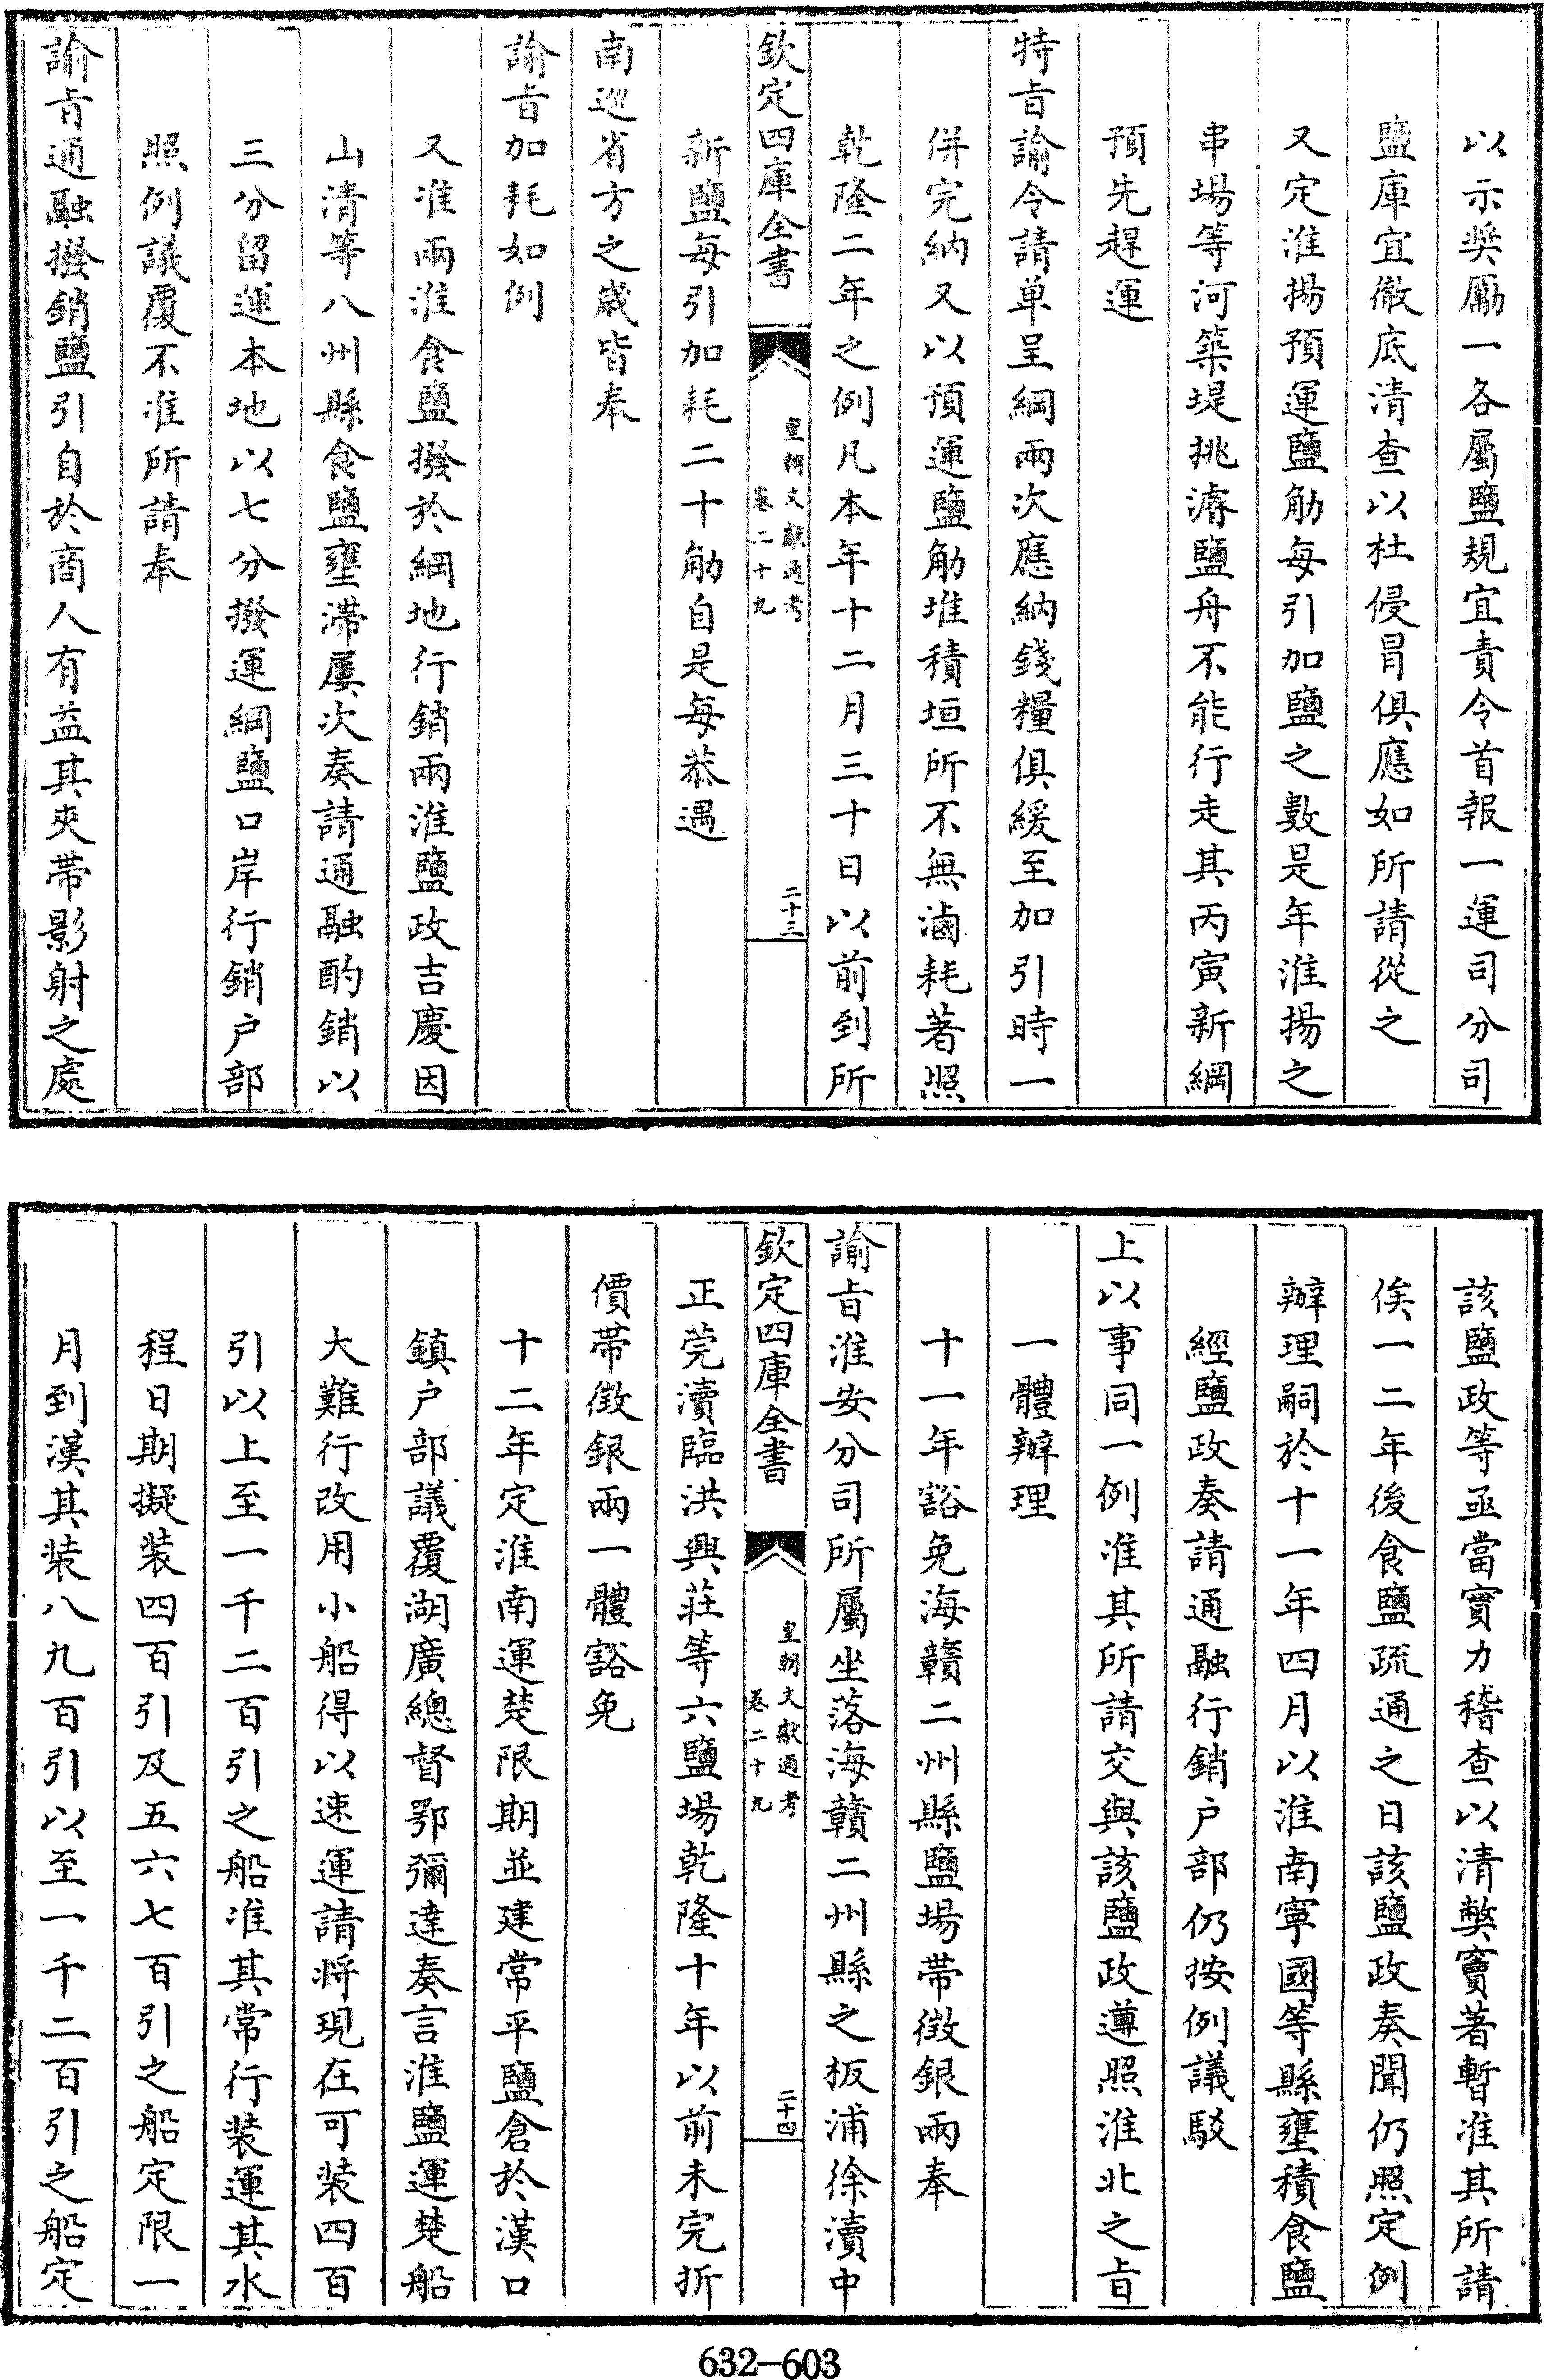 以示奬勵一各屬鹽規宜責令首報一運司分司
鹽庫宜徹底清查以杜侵冐俱應如所請從之
又定淮揚預運鹽觔每引加鹽之數是年淮揚之
串場等河築堤挑濬鹽舟不能行走其丙寅新綱
預先趕運
特㫖諭令請单呈綱兩次應納錢糧俱緩至加引時一
併完納又以預運鹽觔堆積垣所不無滷耗著照
乾隆二年之例凡本年十二月三十日以前到所
欽定四庫全書
皇朝文獻通考
卷二十九
二十三
新鹽每引加耗二十觔自是每恭遇
南巡省方之歲皆奉
諭㫖加耗如例
又准兩淮食鹽撥於綱地行銷兩淮鹽政吉慶因
山清等八州縣食鹽壅滯屢次奏請通融酌銷以
三分留運本地以七分撥運綱鹽口岸行銷户部
照例議覆不准所請奉
諭㫖通融撥銷鹽引自於商人有益其夾帶影射之處
該鹽政等亟當實力稽查以清弊竇著暫准其所請
俟一二年後食鹽疏通之日該鹽政奏聞仍照定例
辦理嗣於十一年四月以淮南寧國等縣壅積食鹽
經鹽政奏請通融行銷户部仍按例議駁
上以事同一例准其所請交與該鹽政遵照淮北之㫖
一體辦理
十一年豁免海贛二州縣鹽場帶徴銀兩奉
諭㫖淮安分司所屬坐落海贛二州縣之板浦徐瀆中
欽定四庫全書
皇朝文獻通考
卷二十九
二十四
正莞瀆臨洪興莊等六鹽場乾隆十年以前未完折
價帶徴銀兩一體豁免
十二年定淮南運楚限期並建常平鹽倉於漢口
鎮户部議覆湖廣總督鄂彌達奏言淮鹽運楚船
大難行改用小船得以速運請將現在可装四百
引以上至一千二百引之船准其常行装運其水
程日期擬装四百引及五六七百引之船定限一
月到漢其装八九百引以至一千二百引之船定
632-603